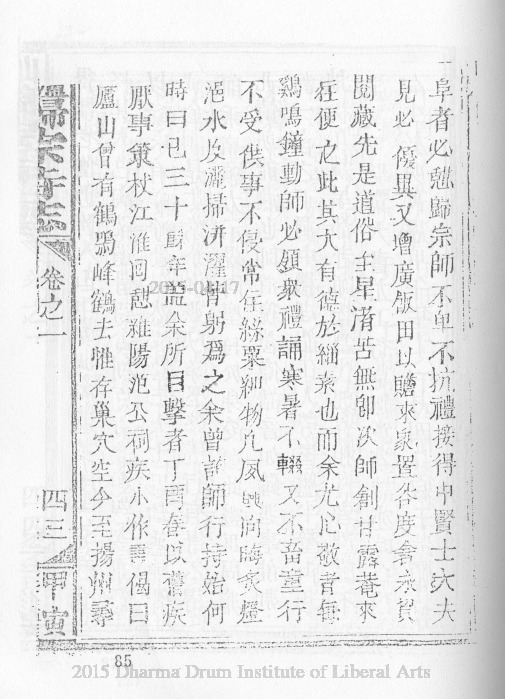 阜者必憇歸宗師不卑不抗禮接得中賢士大夫
見必優異又增廣飯田以贍來衆置各度會永貧
閱藏先是道俗至星渚苦無即次師創甘露菴來
往便之此其大有德於緇素也而余尤心敬者每
鷄鳴鐘動師必領衆禮誦寒暑不輟又不畜童行
不受供事不侵常住絲粟細物凡夙興向晦炙燈
浥水及灑掃洴濯皆躬爲之余曾詰師行持始何
時曰已三十餘年益余所目擊者丁酉春以舊疾
厭事策杖江淮囘憇維陽范公祠疾小作書偈曰
廬山曾有鶴鳴峰鶴去惟存巢穴空今至揚州尋
歸宗寺志
卷之一
四三
甲寅
2015-04-17
85
2015 Dharma Drum Institute of Liberal Arts